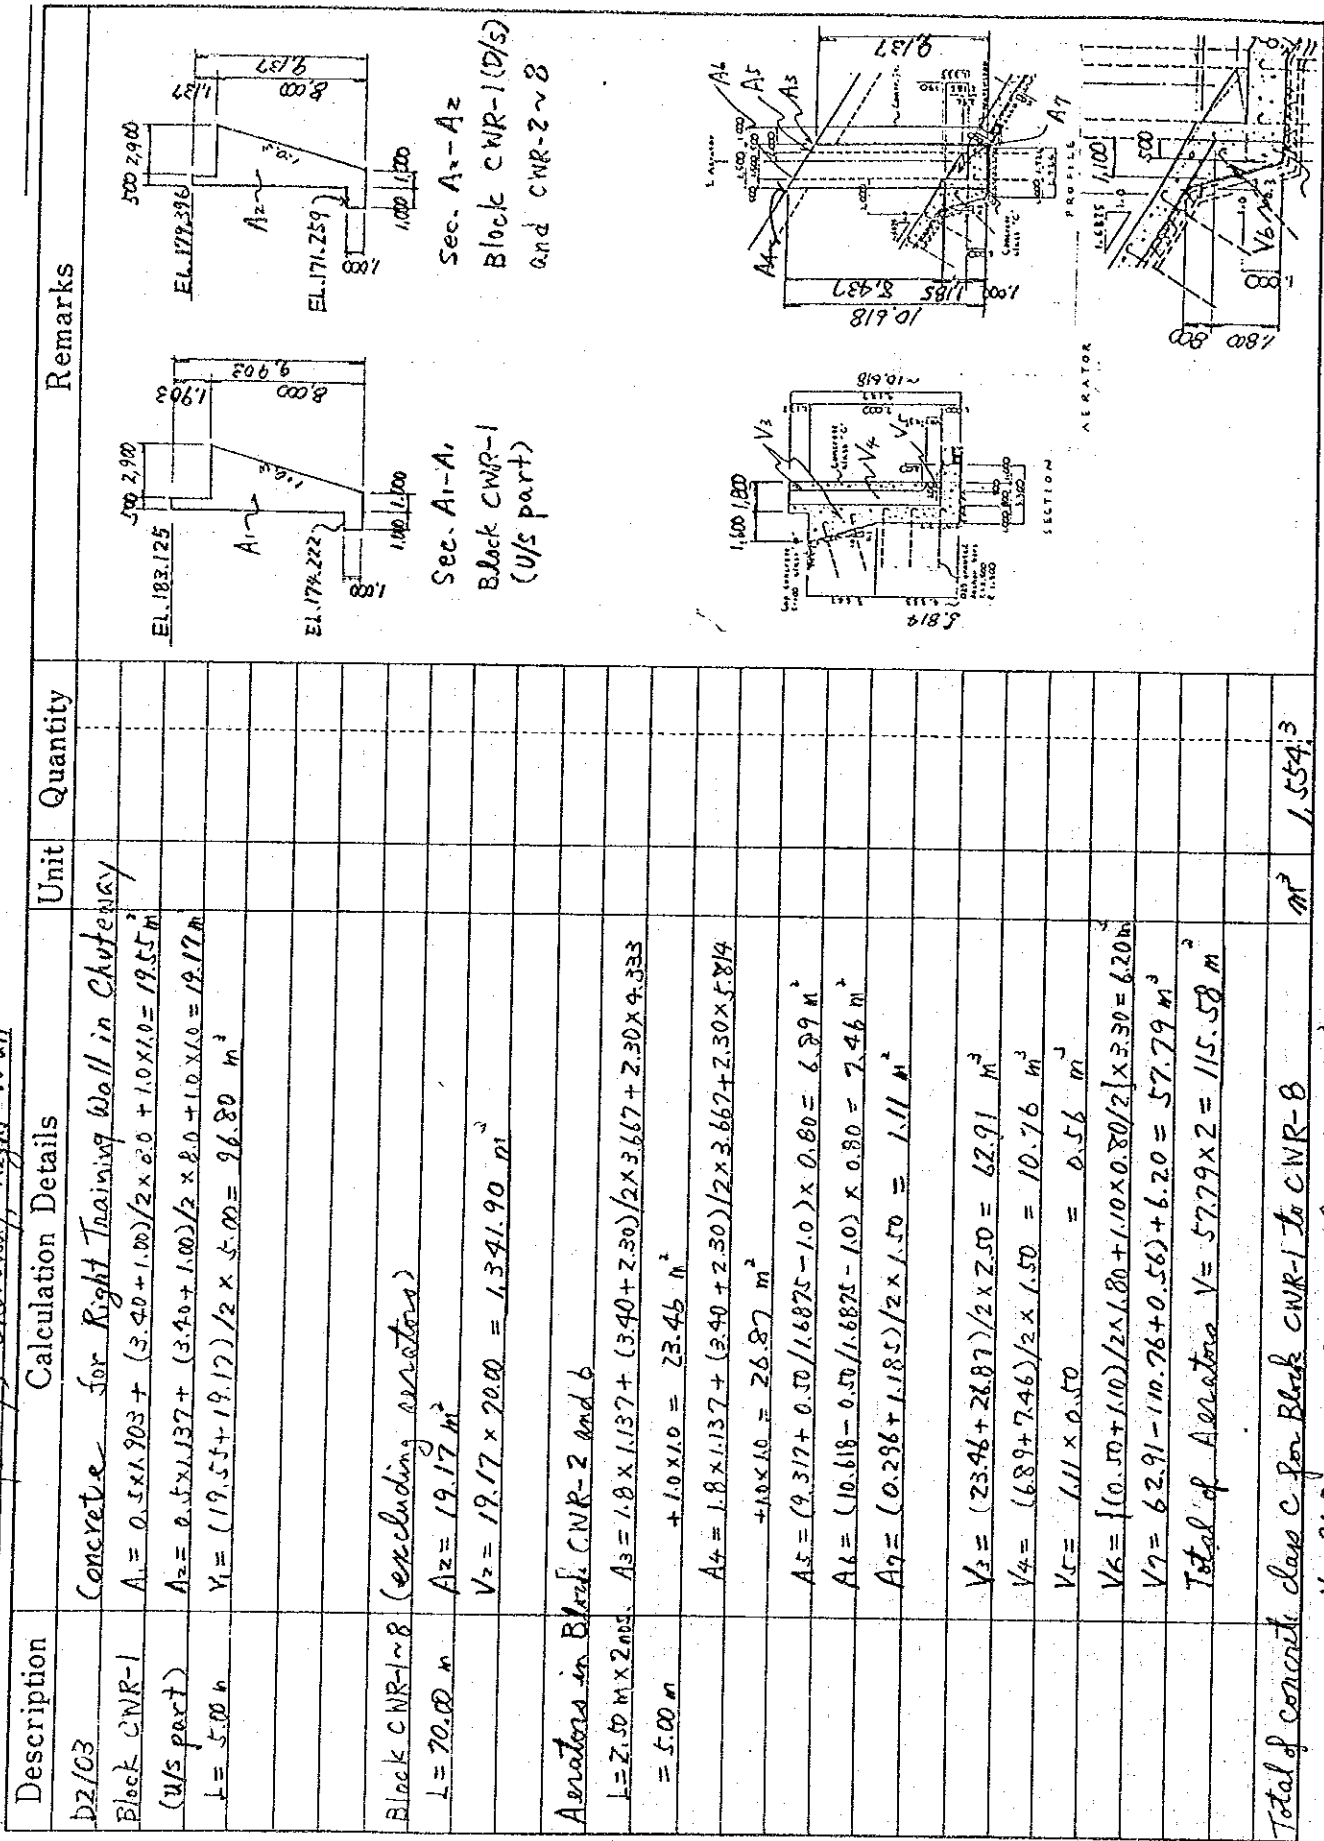 Description
Calculation Details
Unit
Quantity
Remarks
D2/03
Concrete for Right Training Wall in Chuteway
Block CWR-1
A1 = 0.5x1.903 + (3.40+1.00)/2x8.0 + 1.0x1.0 = 19.55 m²
(U/s part)
A2 = 0.5x1.137 + (3.40+1.00)/2 x 8.0 + 1.0 x 1.0 = 19.17 m
L = 5.00 m
V1 = (19.55+19.17)/2 x 5.00 = 96.80 m³
Block CWR-1~8 (excluding aerators)
L = 70.00 m
A2 = 19.17 m²
V2 = 19.17 x 70.00 = 1,341.90 m³
Aerators in Block CWR-2 and 6
L = 2.50 m x 2 nos.
A3 = 1.8 x 1.137 + (3.40+2.30)/2x3.667 + 2.30x4.333
= 5.00 m
+1.0x1.0 = 23.46 m²
A4 = 1.8 x 1.137 + (3.40+2.30)/2x3.667+2.30x5.814
+1.0x1.0 = 26.87 m²
A5 = (9.317 + 0.50/1.6875-1.0) x 0.80 = 6.89 m²
A6 = (10.618 - 0.50/1.6875 - 1.0) x 0.80 = 7.46 m²
A7 = (0.296+1.185)/2 x 1.50 = 1.11 m²
V3 = (23.46+26.87)/2 x 2.50 = 62.91 m³
V4 = (6.89+7.46)/2 x 1.50 = 10.76 m³
V5 = 1.11 x 0.50 = 0.56 m³
V6 = {(0.50+1.10)/2x1.80+1.10x0.80/2}x3.30 = 6.20 m³
V7 = 62.91-(10.76+0.56)+6.20 = 57.79 m³
Total of Aerators V = 57.79 x 2 = 115.58 m³
Total of concrete class C for Block CWR-1 to CWR-8
m³
1,554.3
500 2,900
EL.183.125
1,903
8,000
9,903
A1
EL.174.222
1,000
1,000 1,000
Sec. A1-A1
Block CWR-1
(U/s part)
500 2,900
EL.179.396
1,137
8,000
9,137
A2
EL.171.259
1,000
1,000 1,000
Sec. A2-A2
Block CWR-1 (D/s)
and CWR-2~8
1,600 1,800
V3
V4
V5
~10.618
5.814
SECTION
A6
A5
A3
A4
A7
9,137
8,437
1,185
1,000
10.618
PROFILE
AERATOR
1.6875
1.0
1,100
500
V6
800
1,800